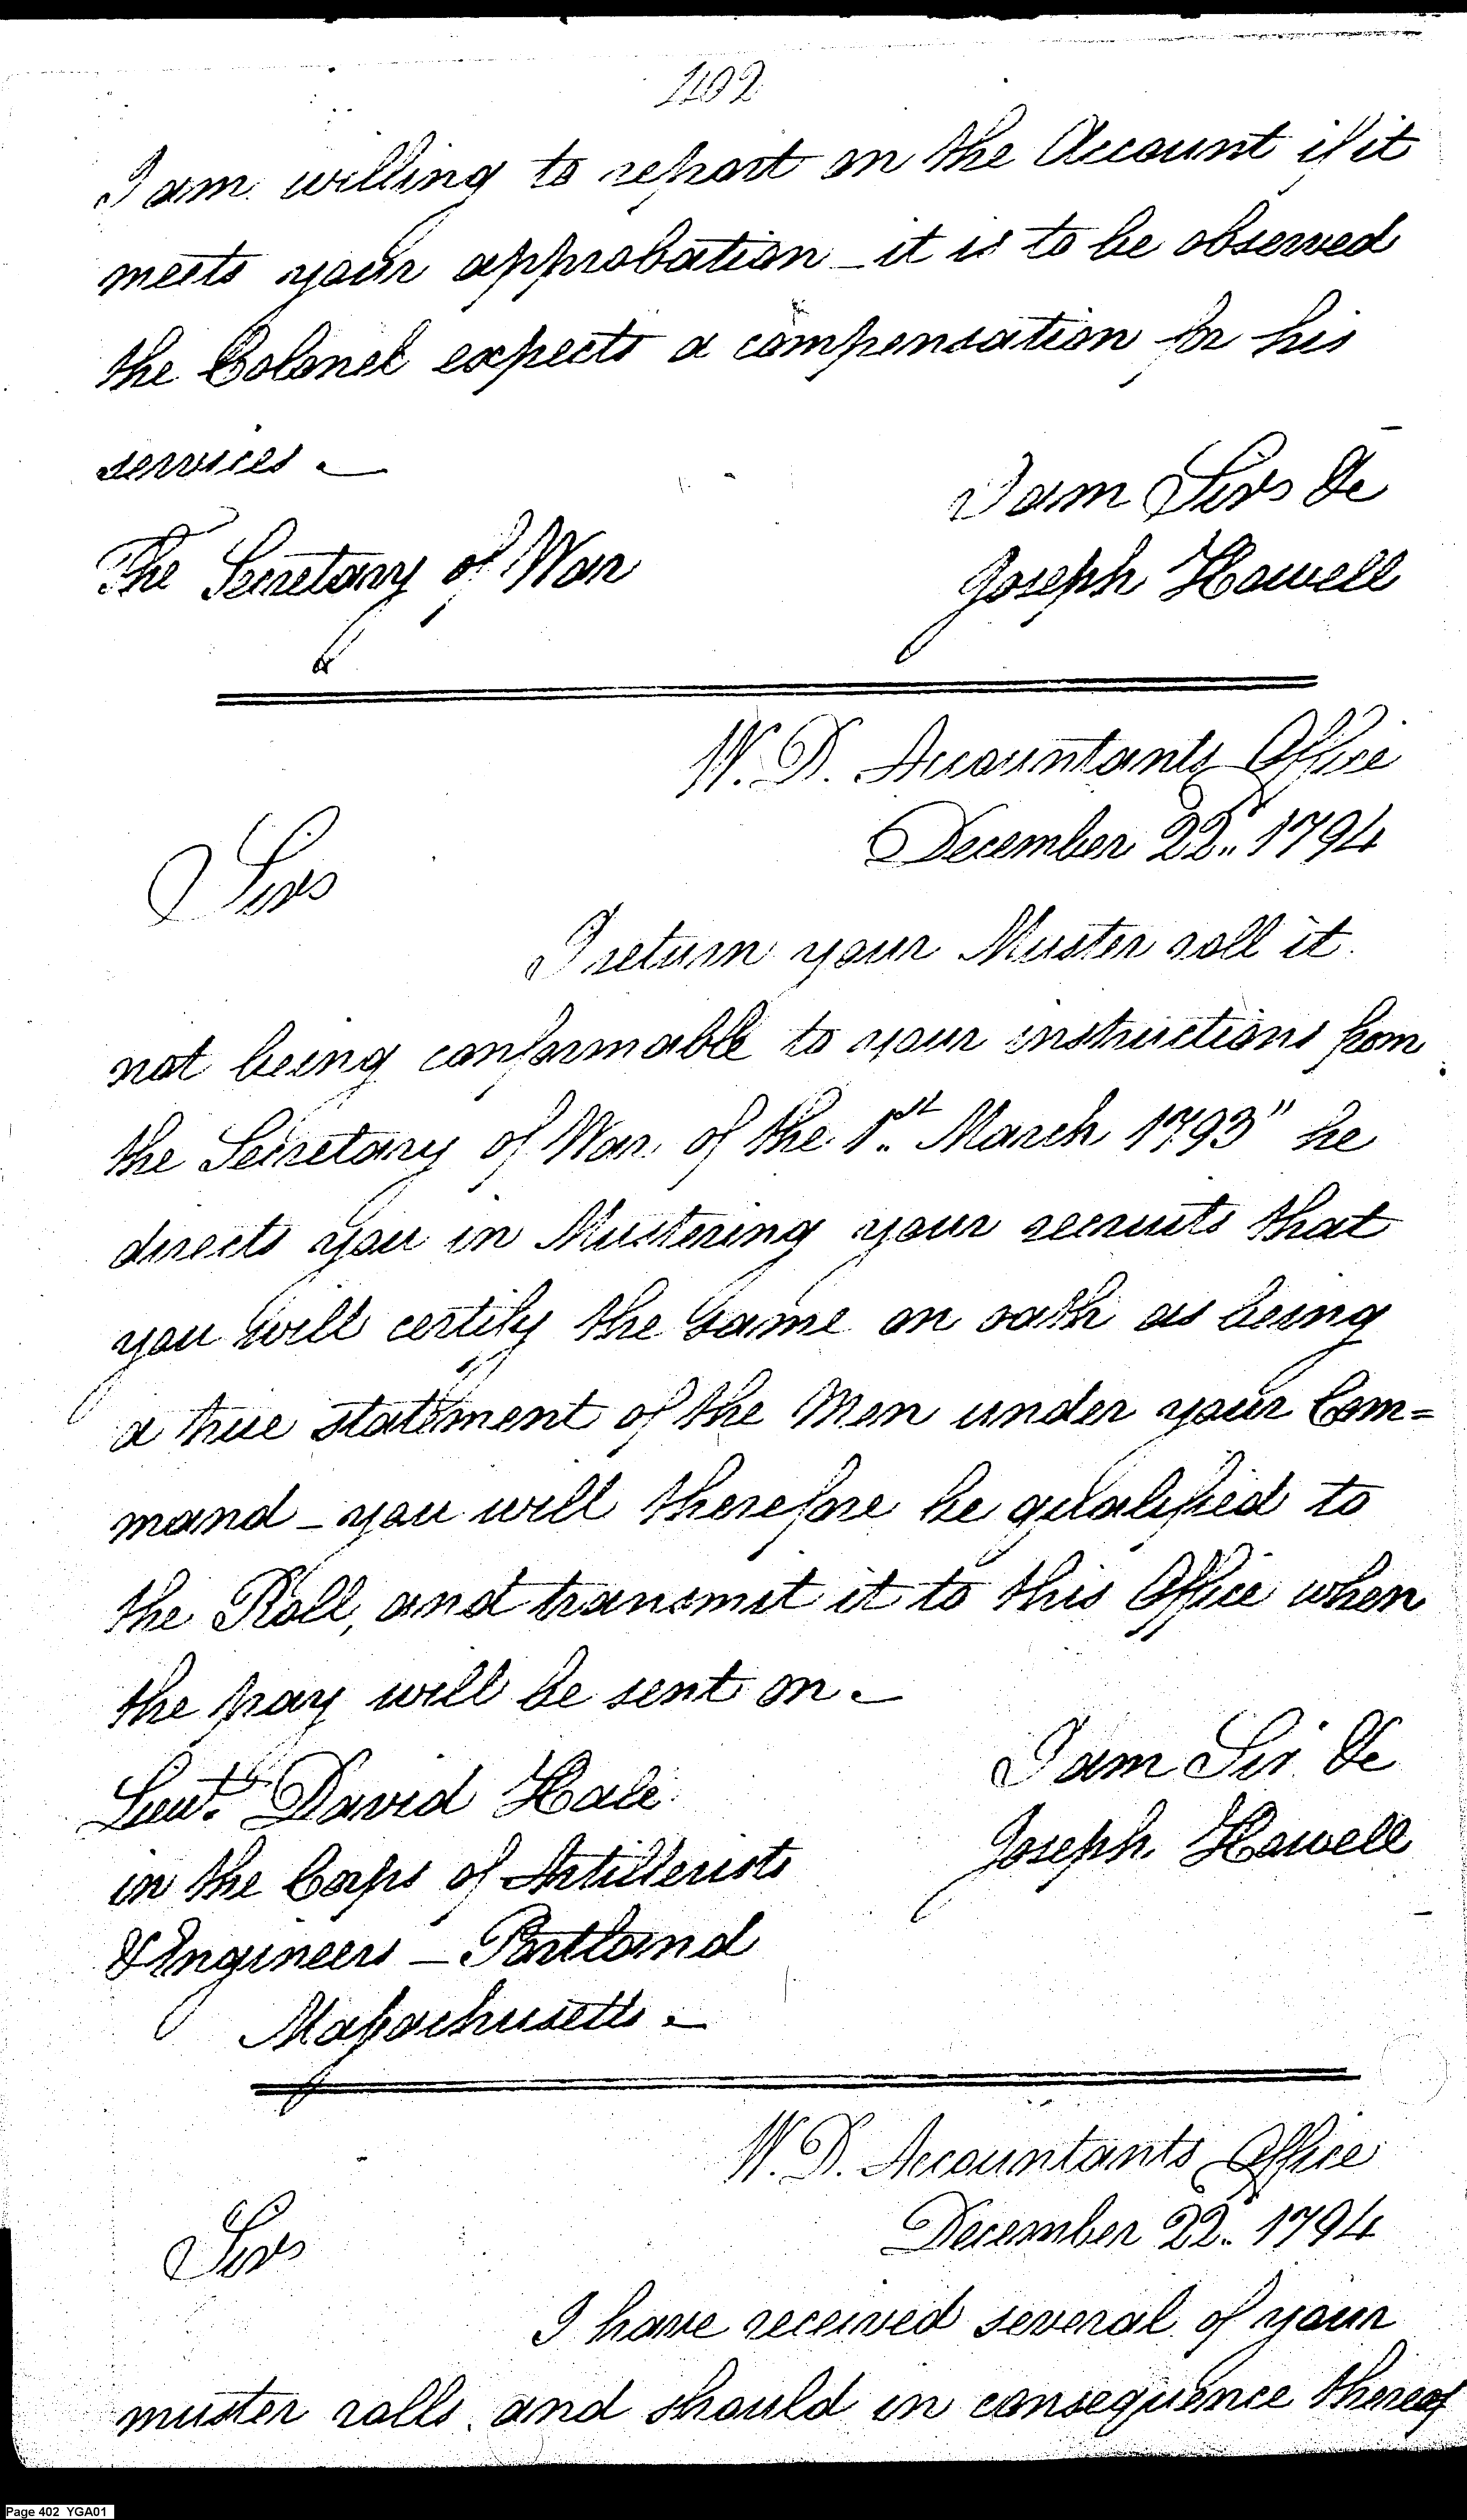 402
I am willing to report on the Account if it
meets your approbation _ it is to be observed
the Colonel expects a compensation for his
services _
I am Sir &c
The Secretary of War
Joseph Howell
W. D. Accountants Office
December 22.. 1794
Sir
I return your Muster roll it
not being conformable to your instructions from
the Secretary of War of the 1st March 1793" he
directs you in Mustering your recruits that
you will certify the same on oath as being
a true statement of the Men under your Com=
mand _ you will therefore be qualified to
the Roll, and transmit it to this Office when
the pay will be sent on _
I am Sir &c
Lieut. David Hale
Joseph Howell
in the Corps of Artillerists
& Engineers _ Portland
Massachusetts _
W. D. Accountants Office
December 22.. 1794
Sir
I have received several of your
muster rolls, and should in consequence thereof
Page 402 YGA01